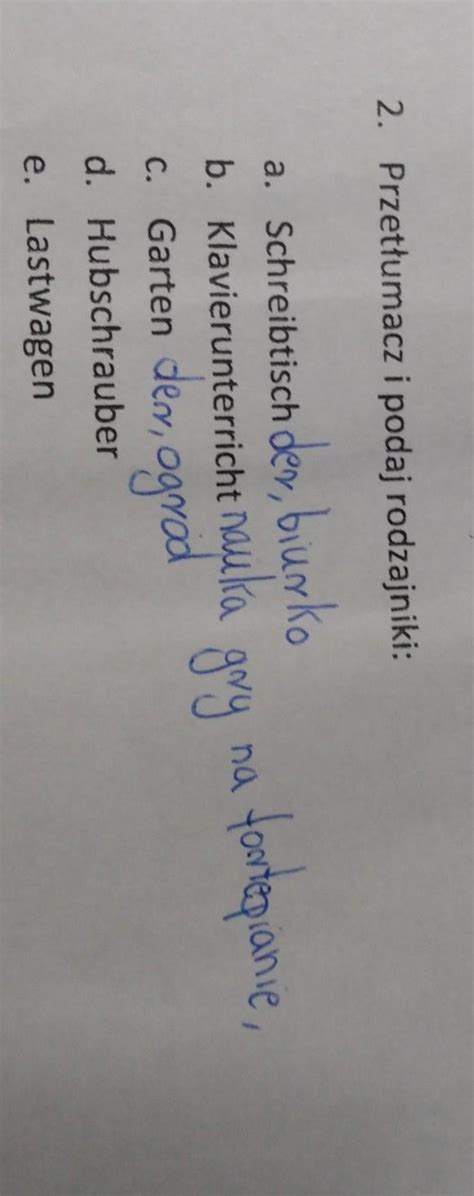 2. Przetłumacz i podaj rodzajniki:
a. Schreibtisch der, biurko
b. Klavierunterricht nauka gry na fortepianie,
c. Garten der, ogród
d. Hubschrauber
e. Lastwagen